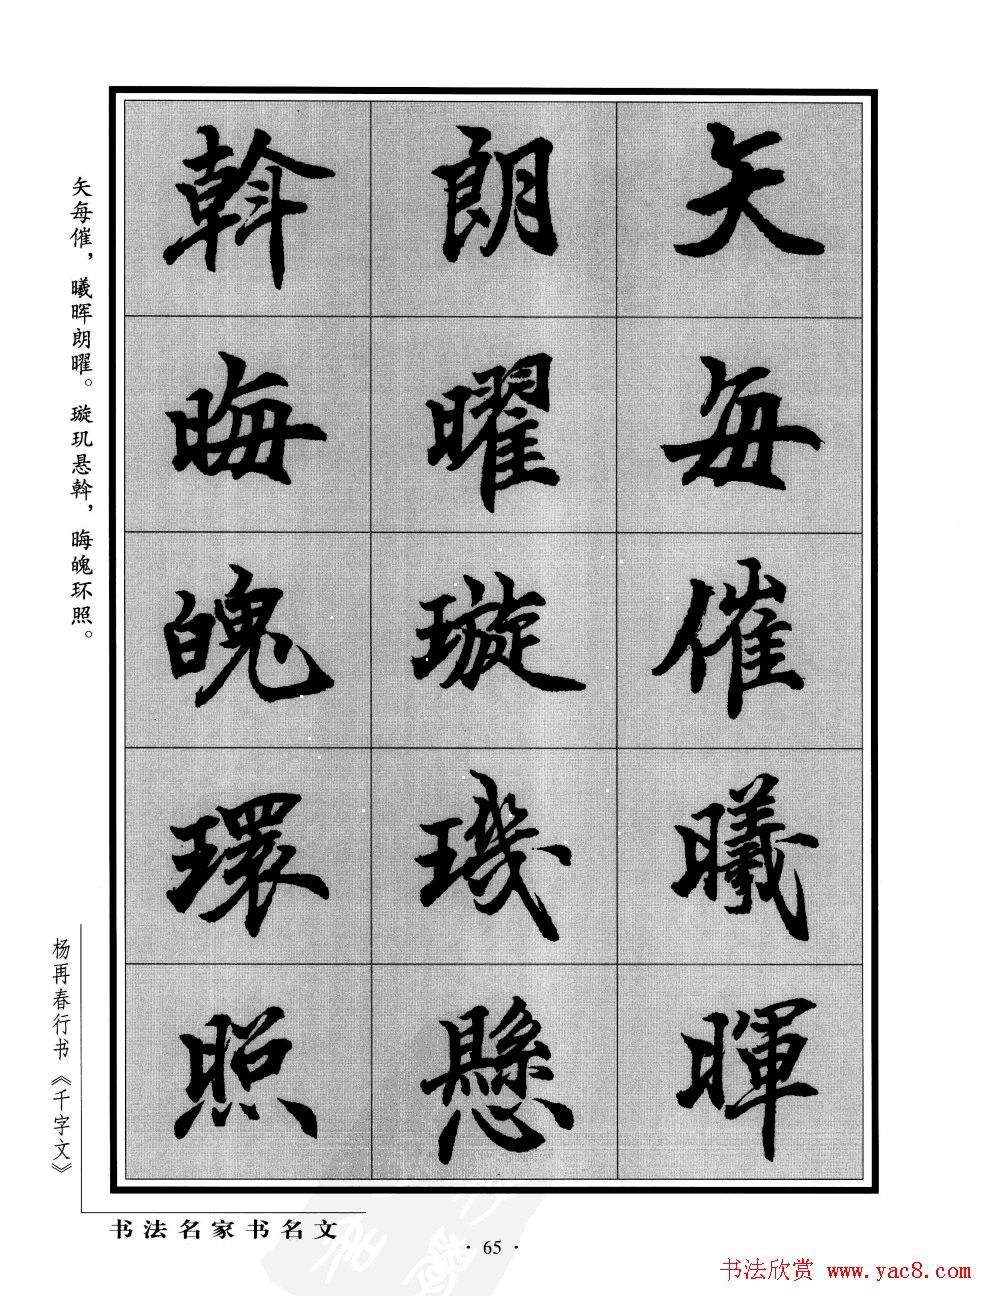 矢每催曦暉
朗曜璇璣懸
斡晦魄環照
矢每催，曦晖朗曜。璇玑悬斡，晦魄环照。
杨再春行书《千字文》
书法名家书名文
·65·
书法欣赏 www.yac8.com